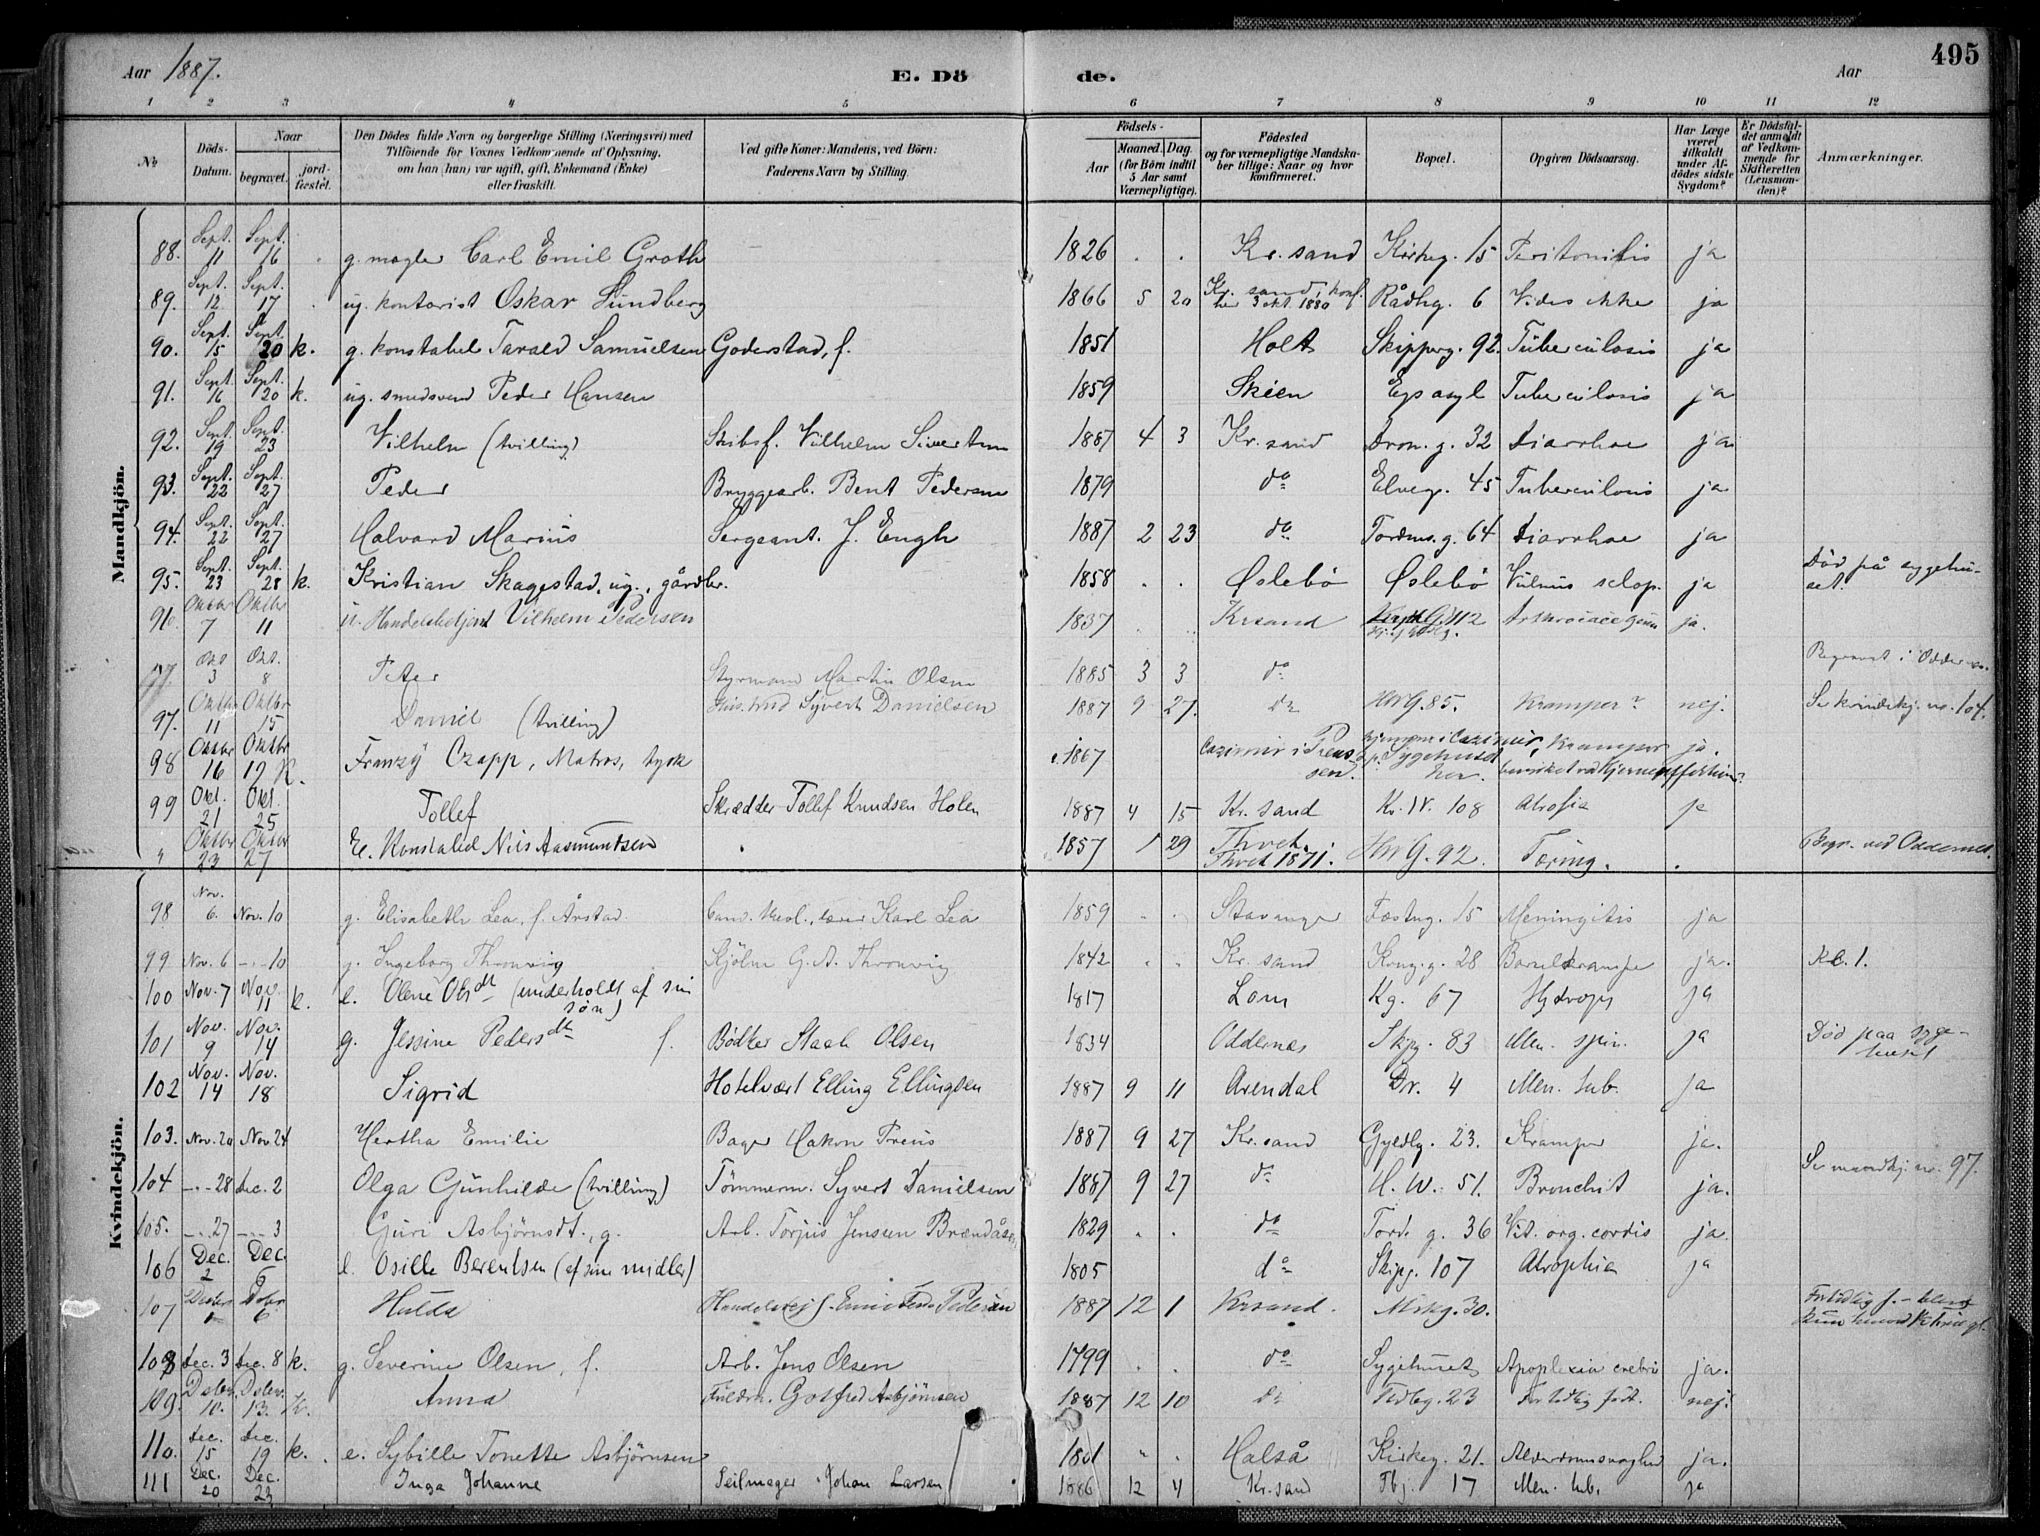 Aar 1887. E. Dö de. Aar 495
1 2 3 4 5 6 7 8 9 10 11 12
No
Döds-Datum.
Naar begravet. jord-fæstet.
Den Dödes fulde Navn og borgerlige Stilling (Næringsvei) med
Tilföiende for Voxnes Vedkommende af Oplysning,
om han (hun) var ugift, gift, Enkemand (Enke)
eller fraskilt.
Ved gifte Koner: Mandens, ved Börn:
Faderens Navn og Stilling.
Födsels-
Aar Maaned. Dag.
(for Börn indtil
5 Aar samt
Værnepligtige).
Födested
og for værnepligtige Mandska-
ber tillige: Naar og hvor
konfirmeret.
Bopæl.
Opgiven Dödsaarsag.
Har Læge
været
tilkaldt
under Af-
dödes sidste
Sygdom?
Er Dödsfal-
det anmeldt
af Vedkom-
mende for
Skifteretten
(Lensman-
den)?
Anmærkninger.
Mandkjön.
88. Sept. 11 Sept. 16 g. mægler Carl Emil Groth 1826 . . Kr.sand Kirkeg. 15 Peritonitis ja
89. Sept. 12 Sept. 17 ug. kontorist Oskar Lundberg 1866 5 20 Kr. sand, konf. her 3 okt. 1880 Rådhg. 6 Vides ikke ja
90. Sept. 15 Sept. 20 k. g. konstabel Tarald Samuelsen Goderstad, f. 1851 Holt Skipperg. 92. Tuberculosis ja
91. Sept. 16 Sept. 20 k. ug. smedsvend Peder Hansen 1859 Skien Egs asyl Tuberculosis ja
92. Sept. 19 Sept. 23 Vilhelm (tvilling) Skibsf. Vilhelm Sivertsen 1887 4 3 Kr. sand Dron. g. 32 Diarrhoe ja
93. Sept. 22 Sept. 27 Peder Bryggearb. Bent Pedersen 1879 do Elveg. 45 Tuberculosis ja
94. Sept. 22 Sept. 27 Halvard Marius Sergeant. J. Engh 1887 2 23 do Tordens.g. 64 Diarrhoe ja
95. Sept. 23 Sept. 28 k. Kristian Skagestad, ug., gårdbr. 1858 . . Øslebø Øslebø Vulnus sclop. ja Død på sygehu-set.
96. Oktbr 7 Oktbr 11 u. Handelsbetjent Vilhelm Pedersen 1837 Krsand ja.
Okt 3 Okt. 8 Peter Styrmand Martin Olsen 1885 3 3 do Begravet i Oddernes.
97. Oktbr 11 Oktbr 15 Daniel (tvilling) Syvert Danielsen 1887 9 27. do HWG. 85. Kramper? nej. Se kvindekj. no. 104.
98 Oktbr 16 Oktbr 19 K. Franzy Czapp, Matros, tysk 1867 Cazimir i Preus-sen. hjemme i Cazimir, Sygehuset her. Kramper ja.
99 Okt. 21 Okt. 25 Tollef Skrædder Tollef Knudsen Holen 1887 4 15 Kr. sand Kr. IV. 108 Atrofia ja
" Oktbr 23 Oktbr 27 E. Konstabel Nils Aasmundsen 1857 1 29 Thvet. Thvet 1871. HWG. 92. Tæring. . Begr. ved Oddernes.
Kvindekjön.
98. Nov. 6. Nov. 10 g. Elisabeth Lea, f. Årstad. Cand. theol., lærer Karl Lea 1859 . . Stavanger Fæstng. 15 Meningitis ja
99 Nov. 6 -- 10 g. Ingeborg Thronvig G. A. Thronvig 1842 . . Kr. sand Kong. g. 28 Barselkrampe ja. Kl. 1.
100 Nov. 7 Nov. 11 k. e. Olene Olsdt (underholdt af sin søn) 1817 Lom Kg. 67 Hydrops ja
101 Nov. 9 Nov. 14 g. Jessine Pedersdt f. Bødker Olsen 1834 Oddernes Skpg. 83 Men. spin. ja Død paa syge-huset
102 Nov. 14 Nov. 18 Sigrid Hotelvært Elling Ellingsen 1887 9 11 Arendal Dr. 4 Men. tub. ja
103. Nov. 20 Nov 24 Hertha Emilie Bager Hakon Preus 1887 9 27 Kr. sand Gyldlg. 23. Kramper ja.
104 -- 28 Dec. 2 Olga Gunhilde (tvilling) Tømmerm. Syvert Danielsen 1887 9 27 do H. W. 51. Bronchit ja. Se mandkj. no. 97.
105. -- 27 -- 3 Guri Asbjørnsdt., g. Arb. Torjus Jensen Brændåsen 1829 . . do Tord. g. 36 Vit. org. cordis ja
106 Dec. 2 Dec. 6 e. Osille Berentsen (af sine midler) 1805 do Skipg. 107 Atrophia ja
107 Hulda Pedersen 1887 12 1 Krsand. Mrkg. 30.
108 Dec. 3 Dec. 8 k. g. Severine Olsen, f. Arb. Jens Olsen 1799 . . do Sygehuset Apoplexia cerebri ja.
109. Dcbr. 10. Dcbr. 13. K. Anna Gotfred Asbjørnsen 1887 12 10 do 23 For tidlig født. nej.
110. Dec. 15 Dec. 19 k. e. Sybille Tonette Asbjørnsen 1801 " . Halså Kirkeg. 21. Alderdomssvaghed ja.
111 Dec. 20 Dec. 23 Inga Johanne Seilmager Johan Larsen 1886 12 4 Kr. sand Tbj. 17 Men. tub. ja